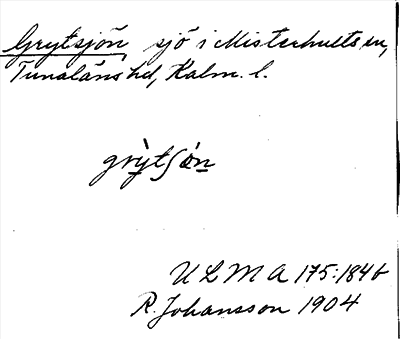 Grytsjön, sjö i Misterhults sn,
Tunaläns hd, Kalm. l.
grỳtʃön
ULMA 175:184b
R. Johansson 1904